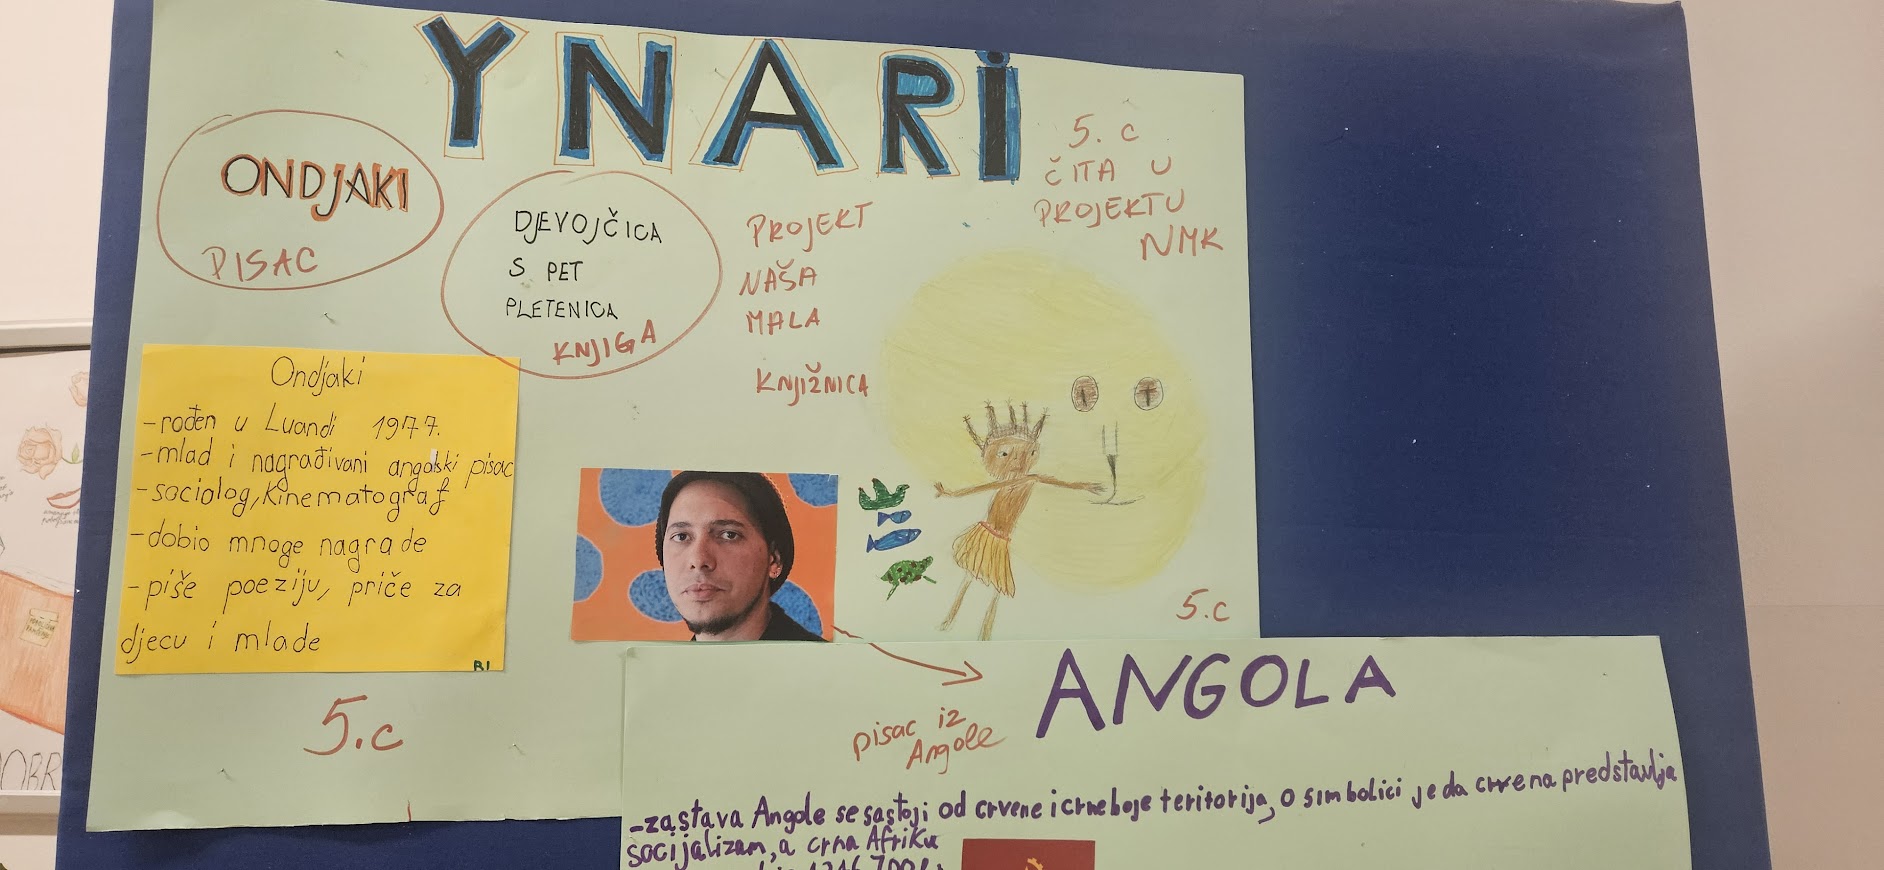 YNARI
ONDJAKI
PISAC
DJEVOJČICA
S PET
PLETENICA
KNJIGA
PROJEKT
NAŠA
MALA
KNJIŽNICA
5. c
ČITA U
PROJEKTU
NMK
Ondjaki
-rođen u Luandi 1977.
-mlad i nagrađivani angolski pisac
-sociolog, kinematograf
-dobio mnoge nagrade
-piše poeziju, priče za
djecu i mlade
BI
5.c
5.c
pisac iz
Angole
ANGOLA
-zastava Angole se sastoji od crvene i crne boje teritorija, o simbolici je da crvena predstavlja
socijalizam, a crna Afriku